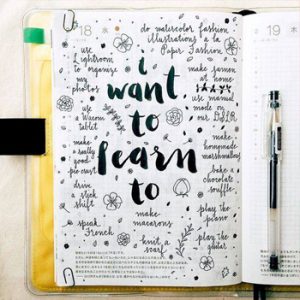 18 水
19
do watercolor fashion
illustrations a la
Paper Fashion
use
Lightroom
to organize
my
photos
i
want
to
learn
to
make ramen
at home
use manual
mode on
our DSLR
use
a Wacom
tablet
make
a really
good
pie crust
make
homemade
marshmallows
drive
a stick
shift
bake a
chocolate
souffle
speak
French
make
macarons
play the
piano
knit a
scarf
play the
guitar